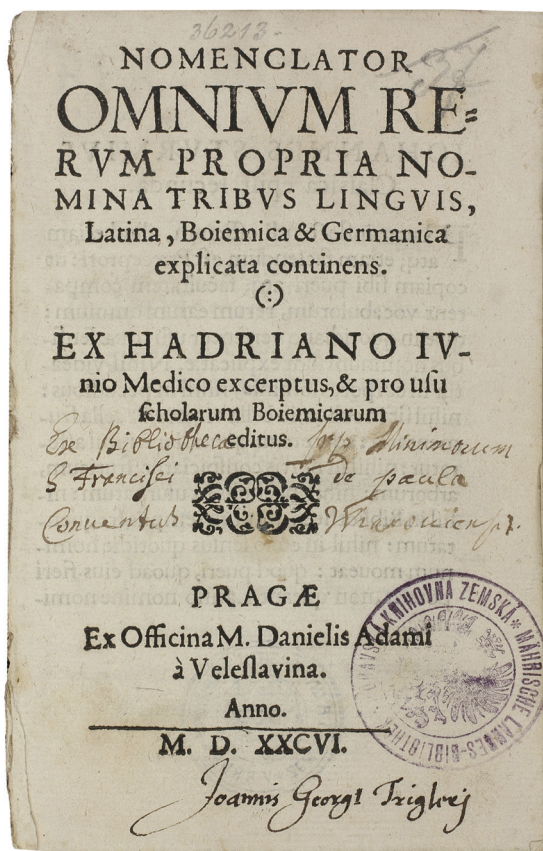 36213.
NOMENCLATOR
OMNIVM RE=
RVM PROPRIA NO-
MINA TRIBVS LINGVIS,
Latina, Boiemica & Germanica
explicata continens.
(:)
EX HADRIANO IV-
nio Medico excerptus, & pro uſu
ſcholarum Boiemicarum
editus.
Ex Bibliotheca Minimorum
S Francisci de paula
Conventus
PRAGÆ
Ex Officina M. Danielis Adami
à Veleſlavina.
Anno.
M. D. XXCVI.
Joannis Georgi Trigleri
KNIHOVNA ZEMSKÁ * MÄHRISCHE LANDES-BIBLIOTHEK